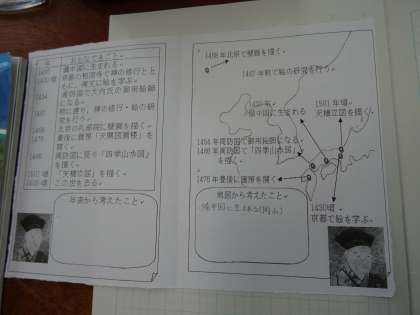 年 おもなできごと
1420 備中国に生まれる。
1430頃 京都の相国寺で禅の修行とと
もに、周文に絵を学ぶ。
1454 周防国で大内氏の御用絵師
になる。
1467 明に渡り、禅の修行・絵の研
究を行う。
1468 北京の礼部院に壁画を描く。
1476 豊後に画房「天開図画楼」を
開く。
1486 周防国に戻り「四季山水図」
を描く。
1501頃 「天橋立図」を描く。
1506頃 この世を去る。
年表から考えたこと
1468年北京で壁画を描く。
1467年明で絵の研究を行う。
備中国に生まれる
1501年頃
天橋立図を描く。
1454年周防国で御用絵師になる
1486年周防国で「四季山水図」
を描く
1476年豊後に画房を開く
地図から考えたこと
1430頃
京都で絵を学ぶ。